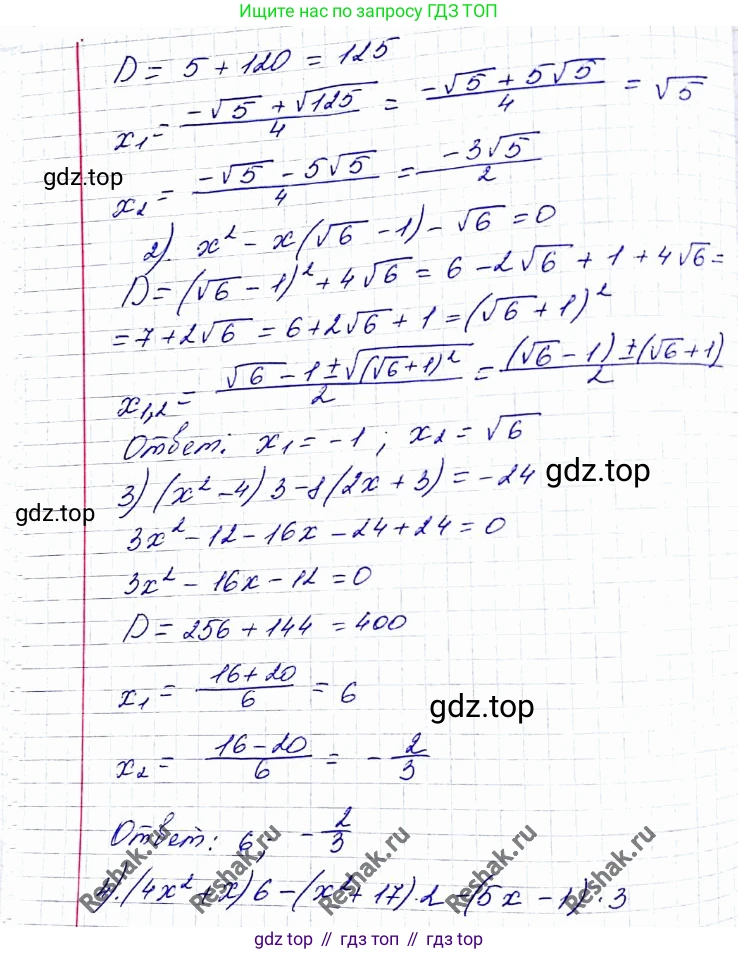 Ищите нас по запросу ГДЗ ТОП
D = 5 + 120 = 125
x₁ = (-√5 + √125)/4 = (-√5 + 5√5)/4 = √5
gdz.top
x₂ = (-√5 - 5√5)/4 = (-3√5)/2
2). x² - x(√6 - 1) - √6 = 0
D = (√6 - 1)² + 4√6 = 6 - 2√6 + 1 + 4√6 =
= 7 + 2√6 = 6 + 2√6 + 1 = (√6 + 1)²
x₁,₂ = (√6 - 1 ± √(√6 + 1)²)/2 = ((√6 - 1) ± (√6 + 1))/2
Ответ: x₁ = -1; x₂ = √6
3) (x² - 4) 3 - 8(2x + 3) = -24
gdz.top
gdz.top
3x² - 12 - 16x - 24 + 24 = 0
3x² - 16x - 12 = 0
D = 256 + 144 = 400
x₁ = (16 + 20)/6 = 6
gdz.top
x₂ = (16 - 20)/6 = -2/3
Ответ: 6; -2/3
4). (4x² + x) 6 - (x² + 17)·2 = (5x - 1)·3
Reshak.ru Reshak.ru Reshak.ru Reshak.ru Reshak.ru
gdz top // гдз топ // gdz.top // гдз.топ